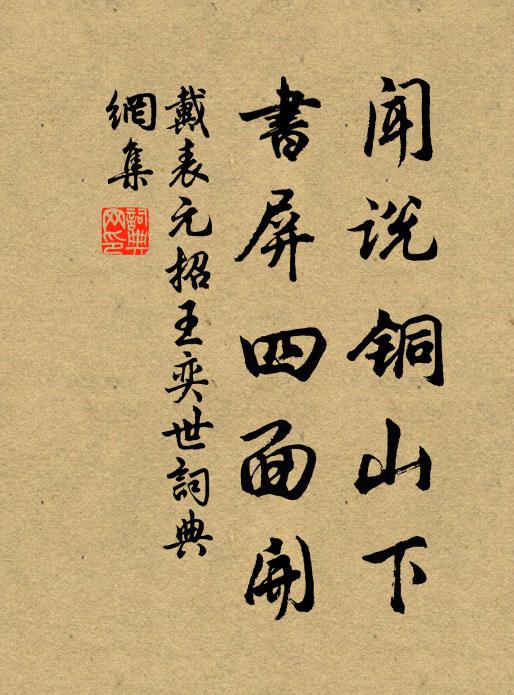 闻说铜山下
書屏四面開
戴表元招王奕世詞典
網集
詞典
网印